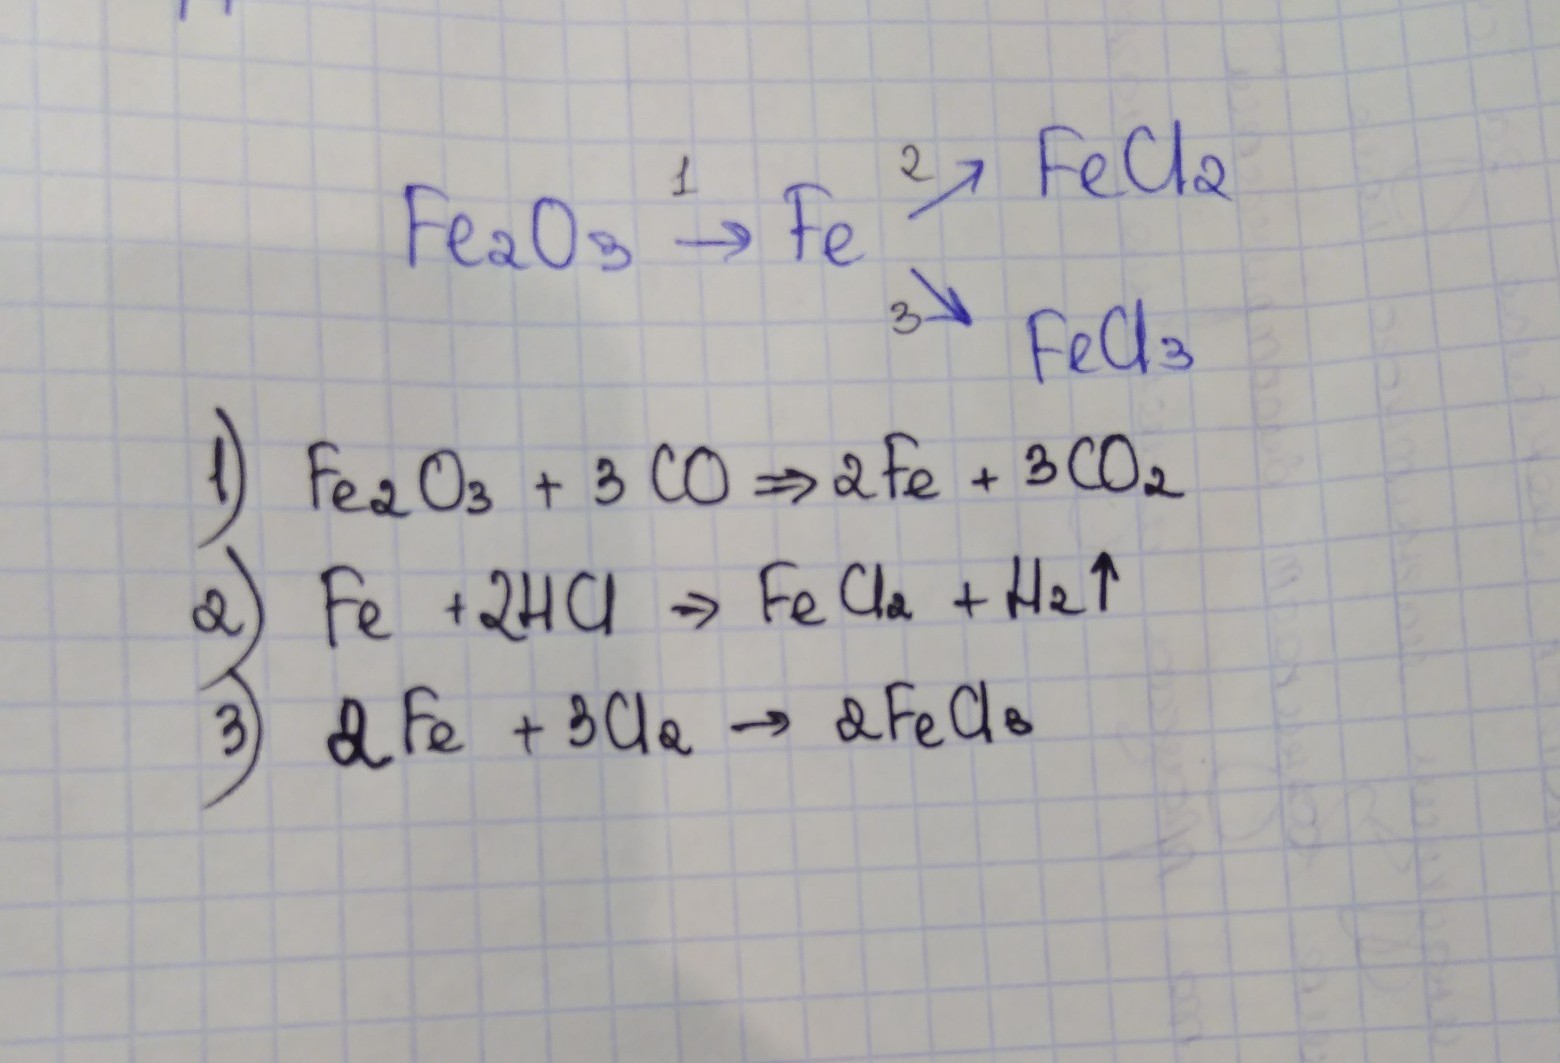 Fe₂O₃ 1→ Fe 2↗ FeCl₂
3↘ FeCl₃
1) Fe₂O₃ + 3CO ⇒ 2Fe + 3CO₂
2) Fe + 2HCl → FeCl₂ + H₂↑
3) 2Fe + 3Cl₂ → 2FeCl₃